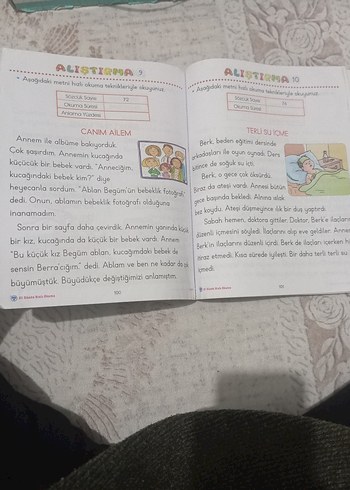 ALIŞTIRMA 9
• Aşağıdaki metni hızlı okuma teknikleriyle okuyunuz.
Sözcük Sayısı 72
Okuma Süresi
Anlama Yüzdesi
CANIM AİLEM
Annem ile albüme bakıyorduk.
Çok şaşırdım. Annemin kucağında
küçücük bir bebek vardı. "Anneciğim,
kucağındaki bebek kim?" diye
heyecanla sordum. "Ablan Begüm'ün bebeklik fotoğrafı."
dedi. Onun, ablamın bebeklik fotoğrafı olduğuna
inanamadım.
Sonra bir sayfa daha çevirdik. Annemin yanında küçük
bir kız, kucağında da küçük bir bebek vardı. Annem
"Bu küçük kız Begüm ablan, kucağımdaki bebek de
sensin Berra'cığım." dedi. Ablam ve ben ne kadar da
büyümüştük. Büyüdükçe değiştiğimizi anlamıştım.
ALIŞTIRMA 10
• Aşağıdaki metni hızlı okuma teknikleriyle okuyunuz.
Sözcük Sayısı
Okuma Süresi
TERLİ SU İÇME
Berk, beden eğitimi dersinde
arkadaşları ile oyun oynadı. Ders
bitince de soğuk su içti.
Berk, o gece çok öksürdü.
Biraz da ateşi vardı. Annesi bütün
gece başında bekledi. Alnına ıslak
bez koydu. Ateşi düşmeyince ılık bir duş yaptırdı.
Sabah hemen, doktora gittiler. Doktor, Berk'e ilaçlarını
düzenli içmesini söyledi. İlaçlarını alıp eve geldiler. Annesi
Berk'in ilaçlarını düzenli içirdi. Berk de ilaçları içerken hiç
itiraz etmedi. Kısa sürede iyileşti. Bir daha terli terli su
içmedi.